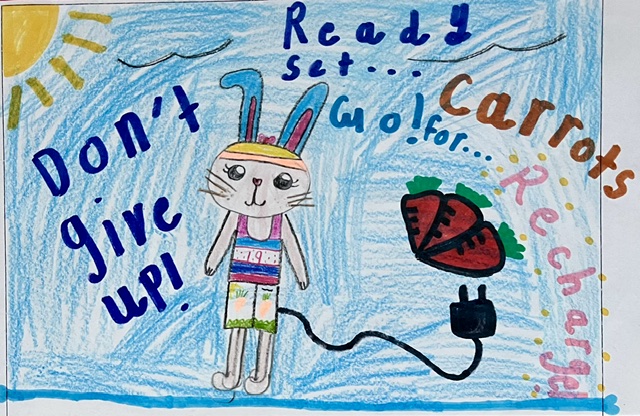 Don't
give
up!
Ready
set...
Go! for...
Carrots
Recharge!
19